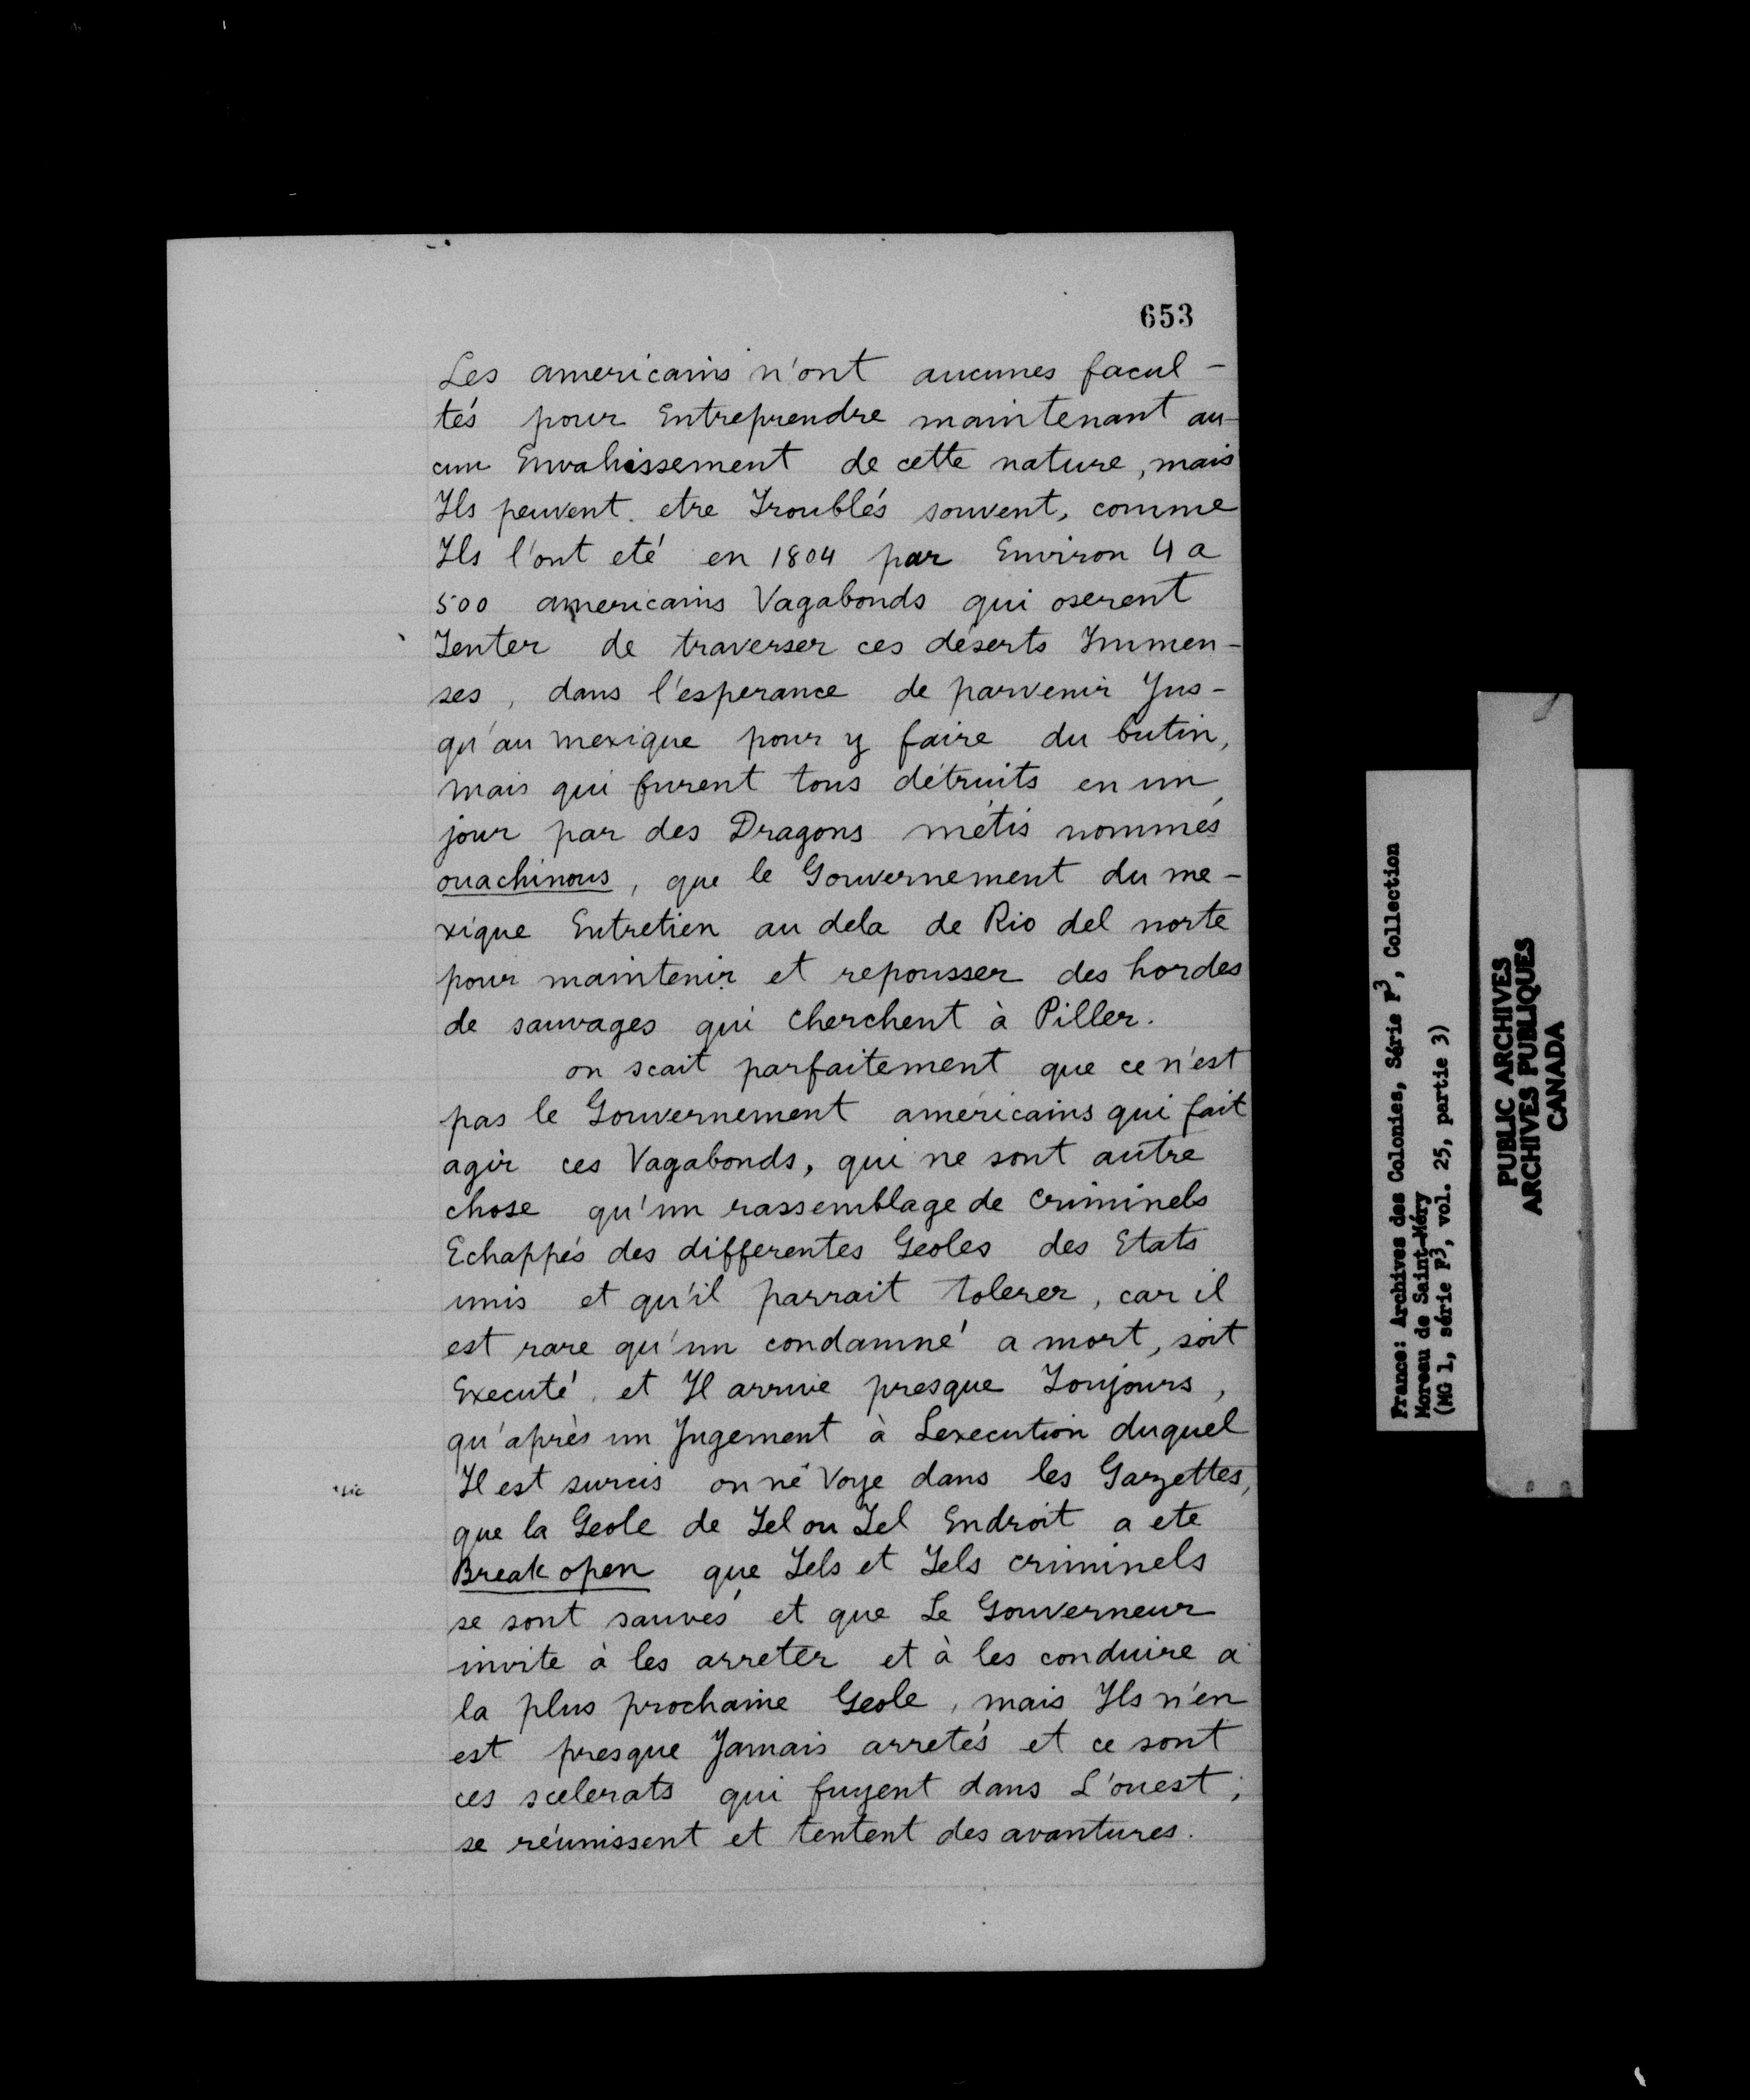 653
Les americains n'ont aucunes facul-
tés pour Entreprendre maintenant au-
cun Envahissement de cette nature, mais
Ils peuvent etre Troublés souvent, comme
Ils l'ont eté en 1804 par Environ 4 a
500 americains Vagabonds qui oserent
Tenter de traverser ces déserts Immen-
ses, dans l'esperance de parvenir Jus-
qu'au mexique pour y faire du butin,
mais qui furent tous détruits en un
jour par des Dragons métis nommés
ouachinous, que le Gouvernement du me-
xique Entretien au dela de Rio del norte
pour maintenir et repousser des hordes
de sauvages qui cherchent à Piller.
on scait parfaitement que ce n'est
pas le Gouvernement américains qui fait
agir ces Vagabonds, qui ne sont autre
chose qu'un rassemblage de criminels
Echappés des differentes Geoles des Etats
unis et qu'il parrait tolerer, car il
est rare qu'un condamné a mort, soit
Executé et Il arrive presque Toujours,
qu'après un Jugement à Lexecution duquel
Il est surcis on né Voye dans les Gazettes,
*sic
que la Geole de Tel ou Tel Endroit a ete
Break open que Tels et Tels criminels
se sont sauvés et que Le Gouverneur
invite à les arreter et à les conduire a
la plus prochaine Geole, mais Ils n'en
est presque Jamais arretés et ce sont
ces scelerats qui fuyent dans L'ouest;
se réunissent et tentent des avantures.
France: Archives des Colonies, Série F3, Collection
Moreau de Saint-Méry
(MG 1, série F3, vol. 25, partie 3)
PUBLIC ARCHIVES
ARCHIVES PUBLIQUES
CANADA